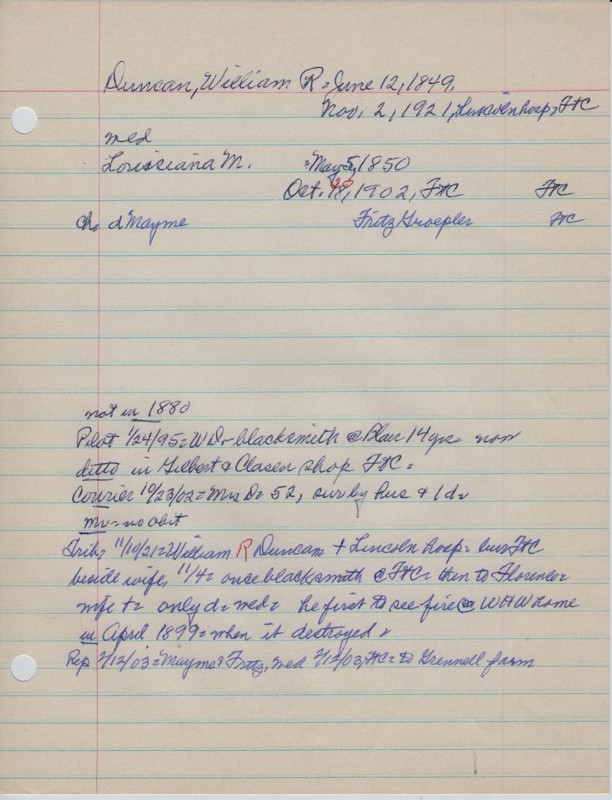 Duncan, William R = June 12, 1849
Nov. 2, 1921, Lincoln hosp, FtC
med
Louisiana M. = May 5, 1850
Oct. 18, 20 1902, FtC FtC
ch d Mayme Fritz Groepler FtC
not in 1880
Pilot 1/24/95 = W D - blacksmith @ Blair 14 yrs = now
ditto in Gilbert & Clasen shop FtC =
Courier 10/23/02 = Mrs D = 52, sur by hus & 1 d =
mv = no obit
Trib, 11/10/21 = William R Duncan + Lincoln hosp = bur FtC
beside wife, 11/4 = once blacksmith @ FtC = then to Florence =
wife + = only d = med = he first to see fire @ WHW home
in April 1899 = when it destroyed =
Rep 2/12/03 = Mayme & Fritz, med 2/12/03, FtC = to Grennell farm